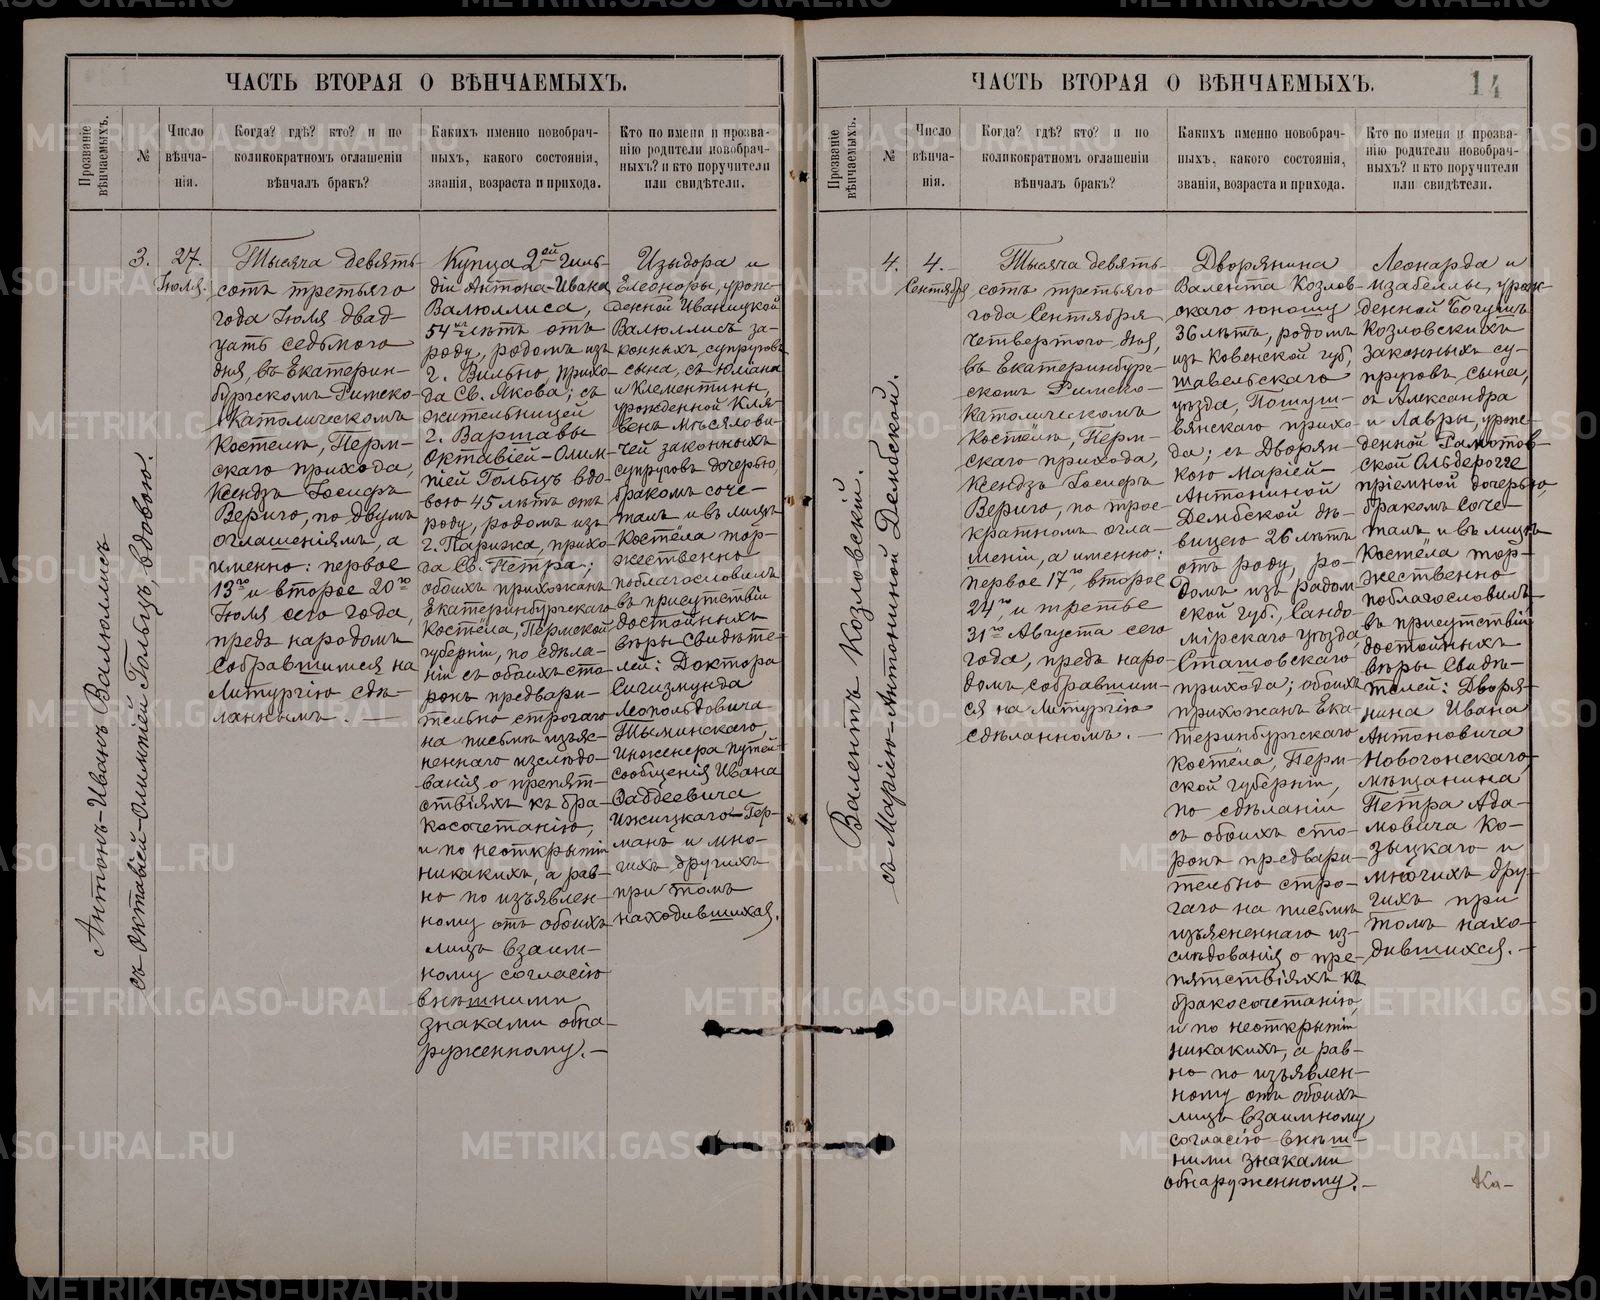 ЧАСТЬ ВТОРАЯ О ВѢНЧАЕМЫХЪ.
Прозваніе вѣнчаемыхъ.
№
Число
вѣнча-
нія.
Когда? гдѣ? кто? и по
коликократномъ оглашеніи
вѣнчалъ бракъ?
Какихъ именно новобрач-
ныхъ, какого состоянія,
званія, возраста и прихода.
Кто по имени и прозва-
нію родители новобрач-
ныхъ? и кто поручители
или свидѣтели.
Антонъ-Иванъ Валюллисъ
съ Октавіей-Олимпіей Гольцъ, вдовою.
3.
27.
Іюля.
Тысяча девять-
сотъ третьяго
года Іюля двад-
цать седьмого
дня, въ Екатерин-
бургскомъ Римско-
Католическомъ
Костелѣ, Перм-
скаго прихода,
Ксендзъ Іосифъ
Вериго, по двумъ
оглашеніямъ, а
именно: первое
13го и второе 20го
Іюля сего года,
предъ народомъ
собравшимся на
Литургію сдѣ-
ланнымъ. —
Купца 2ей Гиль-
діи Антона-Ивана
Валюллиса,
54хъ лѣтъ отъ
роду, родомъ изъ
г. Вильно прихо-
да Св. Якова; съ
жительницей
г. Варшавы
Октавіей-Олим-
піей Гольцъ вдо-
вою 45 лѣтъ отъ
роду, родомъ изъ
г. Парижа, прихо-
да Св. Петра;
обоихъ прихожанъ
Екатеринбургскаго
Костёла, Пермской
губерніи, по сдѣла-
ніи съ обоихъ сто-
ронъ предвари-
тельно строгаго
на письмѣ изъяс-
неннаго изслѣдо-
ванія о препят-
ствіяхъ къ бра-
косочетанію,
и по неоткрытіи
никакихъ, а рав-
но по изъявлен-
ному отъ обоихъ
лицъ взаим-
ному согласію
внѣшними
знаками обна-
руженному. —
Изыдора и
Елеоноры, урож-
денной Иваницкой
Валюллисъ за-
конныхъ супруговъ
сына, съ Юліана
и Клементины,
урожденной Кля-
венъ Мѣсялови-
чей законныхъ
супруговъ дочерью,
бракомъ соче-
талъ и въ лицѣ
Костёла тор-
жественно
поблагословилъ
въ присутствіи
достойныхъ
вѣры Свидѣте-
лей: Доктора
Сигизмунда
Леопольдовича
Тыминскаго,
Инженера путей
сообщенія Ивана
Фаддеевича
Ижицкаго-Гер-
манъ и мно-
гихъ другихъ
при томъ
находившихся.
ЧАСТЬ ВТОРАЯ О ВѢНЧАЕМЫХЪ.
14
Прозваніе вѣнчаемыхъ.
№
Число
вѣнча-
нія.
Когда? гдѣ? кто? и по
коликократномъ оглашеніи
вѣнчалъ бракъ?
Какихъ именно новобрач-
ныхъ, какого состоянія,
званія, возраста и прихода.
Кто по имени и прозва-
нію родители новобрач-
ныхъ? и кто поручители
или свидѣтели.
Валентъ Козловскій.
съ Маріею-Антониной Дембской.
4.
4.
Сентября
Тысяча девять-
сотъ третьяго
года Сентября
четвертого дня,
въ Екатеринбург-
скомъ Римско-
Католическомъ
Костёлѣ, Перм-
скаго прихода,
Ксендзъ Іосифъ
Вериго, по трое-
кратномъ огла-
шеніи, а именно:
первое 17го, второе
24го, и третье
31го Августа сего
года, предъ наро-
домъ, собравшим-
ся на Литургію
сдѣланномъ. —
Дворянина
Валента Козлов-
скаго юношу
36 лѣтъ, родомъ
изъ Ковенской губ.,
Шавельскаго
уѣзда, Пошуш-
вянскаго прихо-
да; съ Дворян-
кою Маріей-
Антониной
Дембской дѣ-
вицею 26 лѣтъ
отъ роду, ро-
домъ изъ Радом-
ской губ., Сандо-
мірскаго уѣзда,
Сташовскаго
прихода; обоихъ
прихожанъ Ека-
теринбургскаго
Костёла, Перм-
ской губерніи,
по сдѣланіи
съ обоихъ сто-
ронъ предвари-
тельно стро-
гаго на письмѣ
изъясненнаго из-
слѣдованія о пре-
пятствіяхъ къ
бракосочетанію,
и по неоткрытіи
никакихъ, а рав-
но по изъявлен-
ному отъ обоихъ
лицъ взаимному
согласію внѣш-
ними знаками
обнаруженному. —
Леонарда и
Изабеллы, урож-
денной Богушъ
Козловскихъ
законныхъ су-
пруговъ сына,
съ Александра
и Лавры, урож-
денной Рамотов-
ской Ольдерогге
пріемной дочерью,
бракомъ соче-
талъ и въ лицѣ
Костёла тор-
жественно
поблагословилъ
въ присутствіи
достойныхъ
вѣры Свидѣ-
телей: Дворя-
нина Ивана
Антоновича
Новогонскаго,
мѣщанина
Петра Ада-
мовича Ко-
зыцкаго и
многихъ дру-
гихъ при
томъ нахо-
дившихся. —
Ка-
METRIKI.GASO-URAL.RU